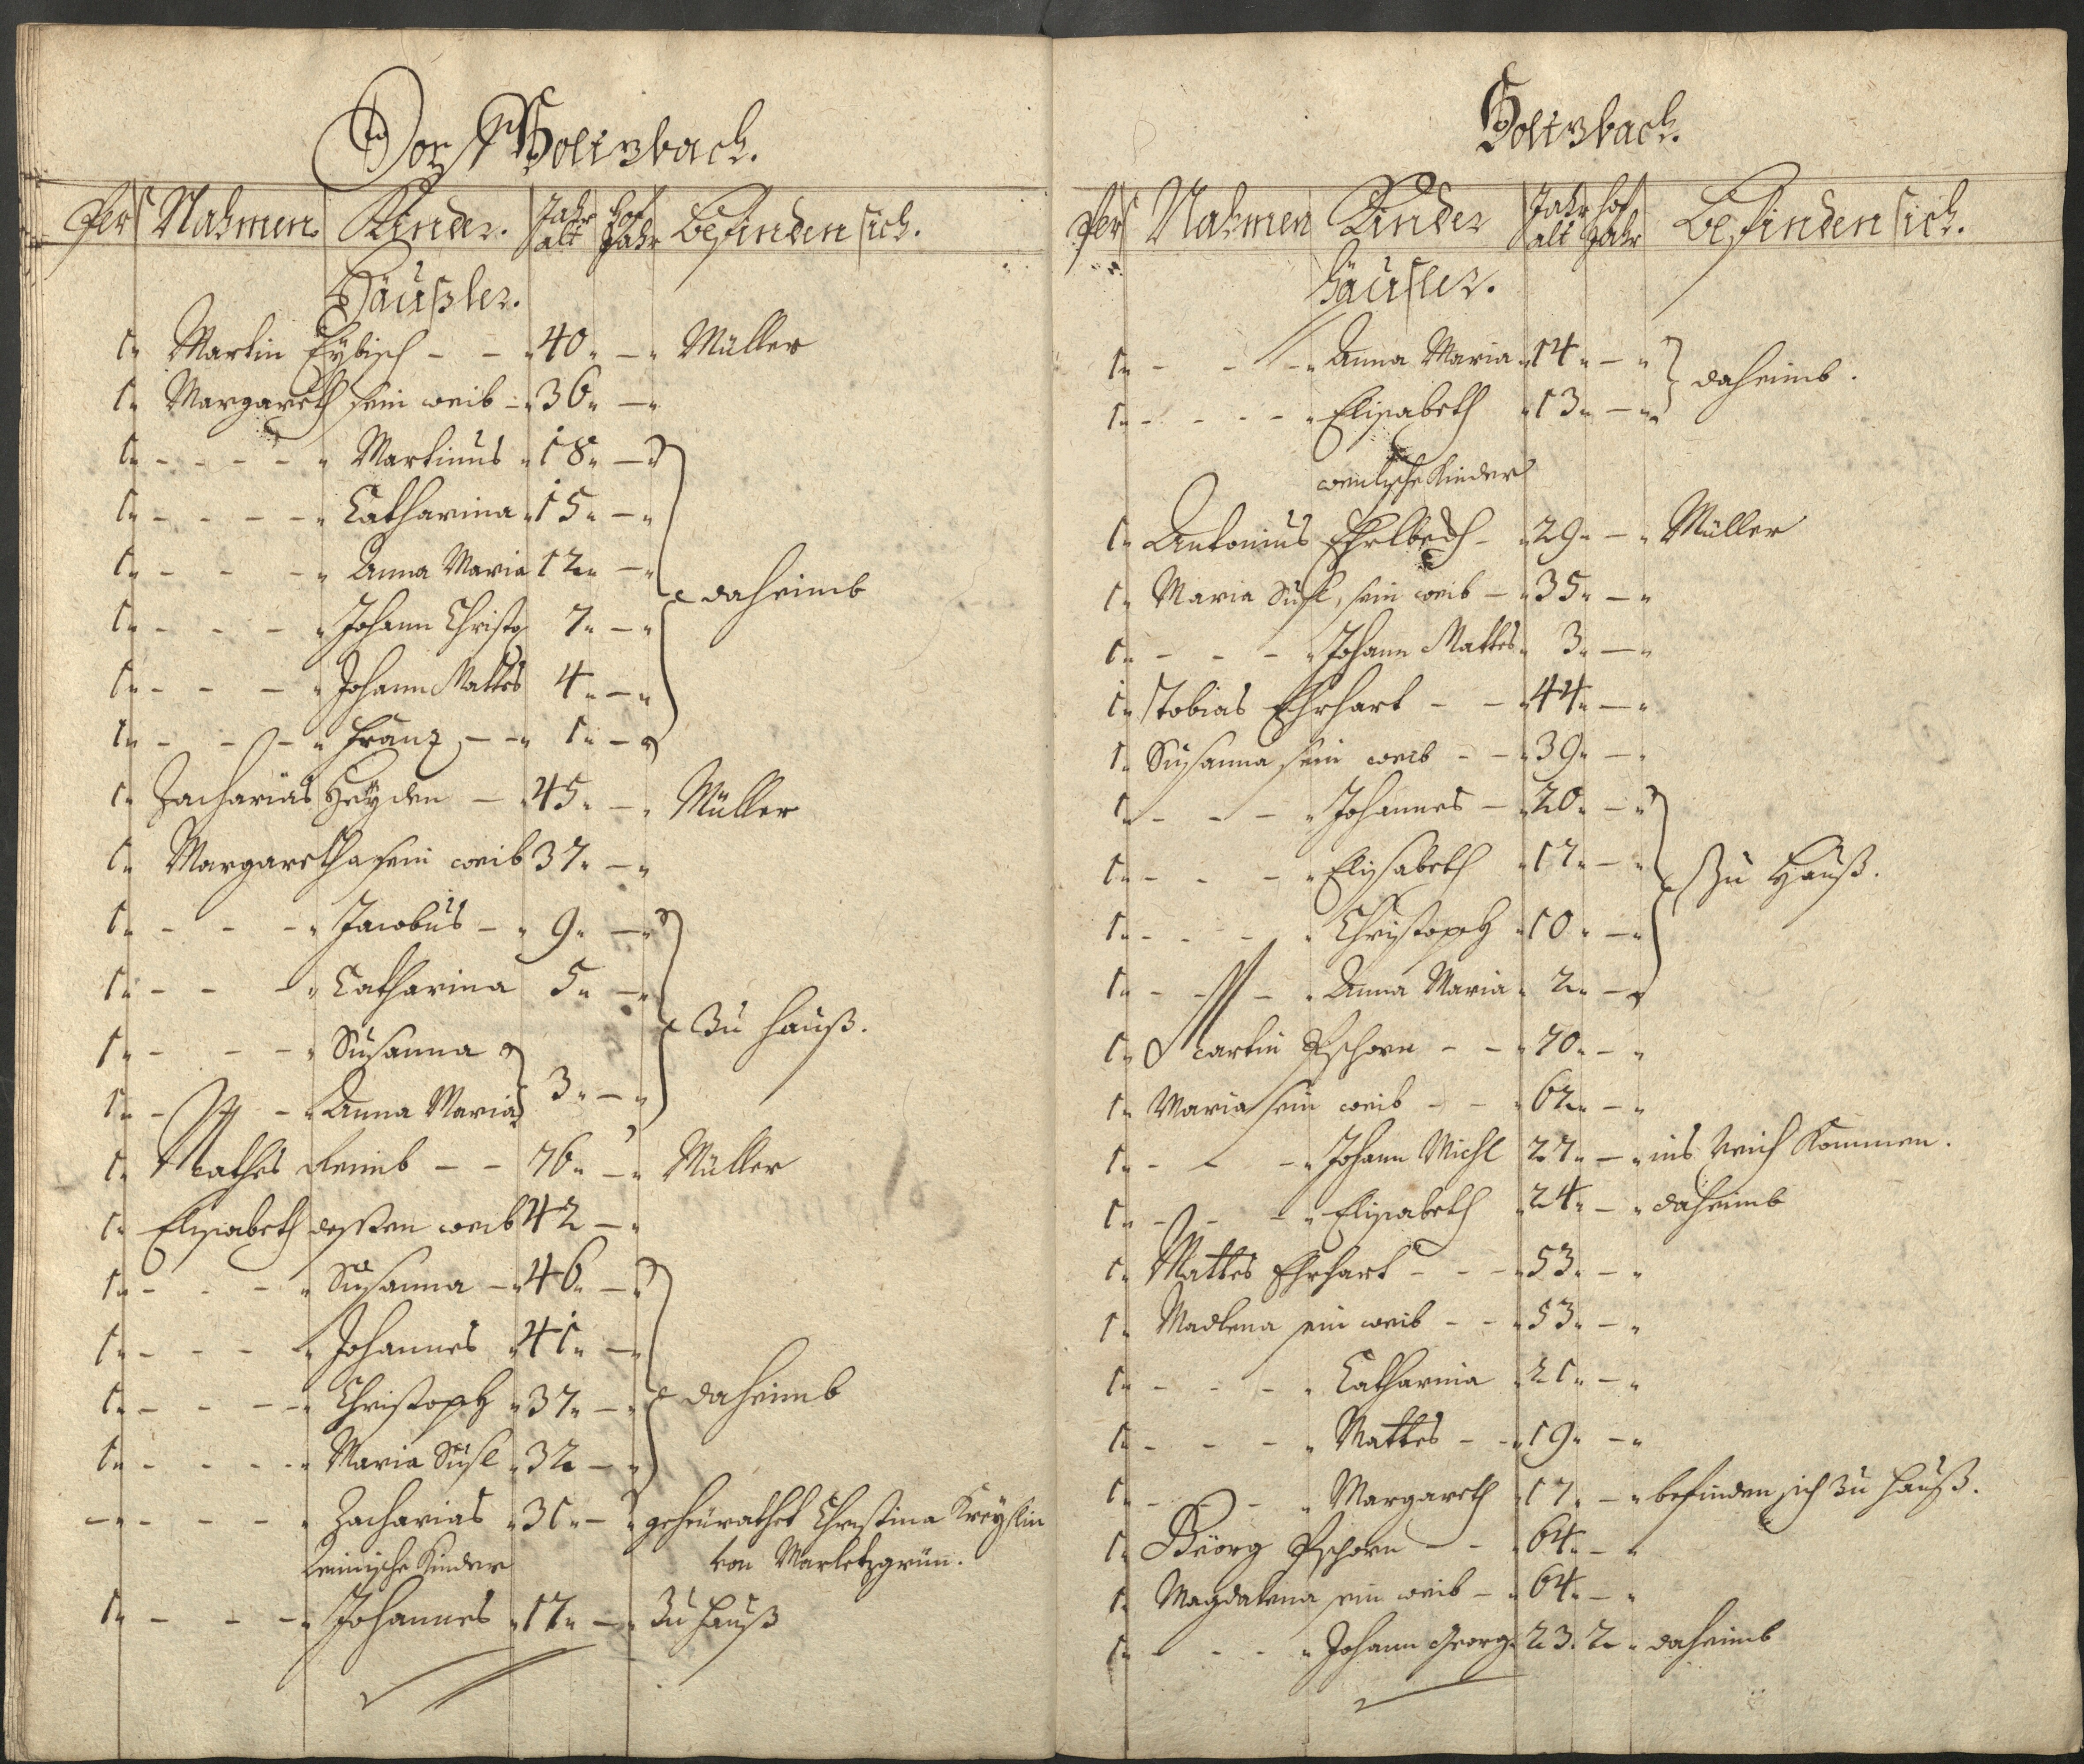 Dorf Holtzbach.
Pers Nahmen Kinder. Jahr alt Hof Jahr Befinden sich.
Häußler.
1" Martin Eÿbisch - - "40" - " Müller
1" Margareth sein weib - "36" - "
1" - - - - " Martinus "18" - "
1" - - - - " Catharina "15" - "
1" - - - " Anna Maria 12" - "
daheimb
1" - - - " Johann Christo 7" - "
1" - - - " Johann Mattes 4" - "
1" - - - " Frantz - - " 1" - "
1" Zacharias Heÿden - "45" - " Müller
1" Margaretha sein weib 37" - "
1" - - - " Jacobus - " 9" - "
1" - - - " Catharina 5" - "
1" - - - " Susanna
zu Hauß.
1" - - - " Anna Maria 3" - "
1" Mathes - - 76" - " Müller
1" Elisabeth dessen weib 42 - "
1" - - - " Susanna - "46" - "
1" - - - " Johannes "41" - "
1" - - - " Christoph "37" - "
daheimb
1" - - - - " Maria Susl "32 - "
- - - - " Zacharias "31" - " geheürathet Christina Kreÿslin
von Marletzgrün.
Kinder
1" - - - " Johannes "17" - " zu Hauß
Holtzbach.
Pers Nahmen Kinder Jahr alt Hof Jahr Befinden sich.
Häusler.
1" - - - " Anna Maria "14" - "
daheimb.
1" - - - - " Elisabeth "13" - "
Kinder
1" Antonius - "29" - " Müller
1" Maria Susl, sein weib - "35" - "
1" - - - " Johann Mattes " 3" - "
1" Tobias Ehrhart - - "44" - "
1" Susanna sein weib - - "39" - "
1" - - - " Johannes - "20" - "
1" - - - " Elisabeth "17" - "
zu Hauß.
1" - - - " Christoph "10" - "
1" - - - " Anna Maria " 2" - "
1" Martin Pschorn - - "70" - "
1" Maria sein weib - - "62" - "
1" - - - " Johann Michl 27" - " ins Reich Kommen.
1" - - - " Elisabeth "24" - " daheimb
1" Mattes Ehrhart - - - "53" - "
1" Madlena sein weib - - "53" - "
1" - - - " Catharina "21" - "
1" - - - " Mattes - - "19" - "
1" - - - " Margareth "17" - " befinden sich zu Hauß.
1" Geörg Pschorn - - "64" - "
1" Magdalena sein weib - "64" - "
1" - - - " Johann Georg "23. 2 " daheimb